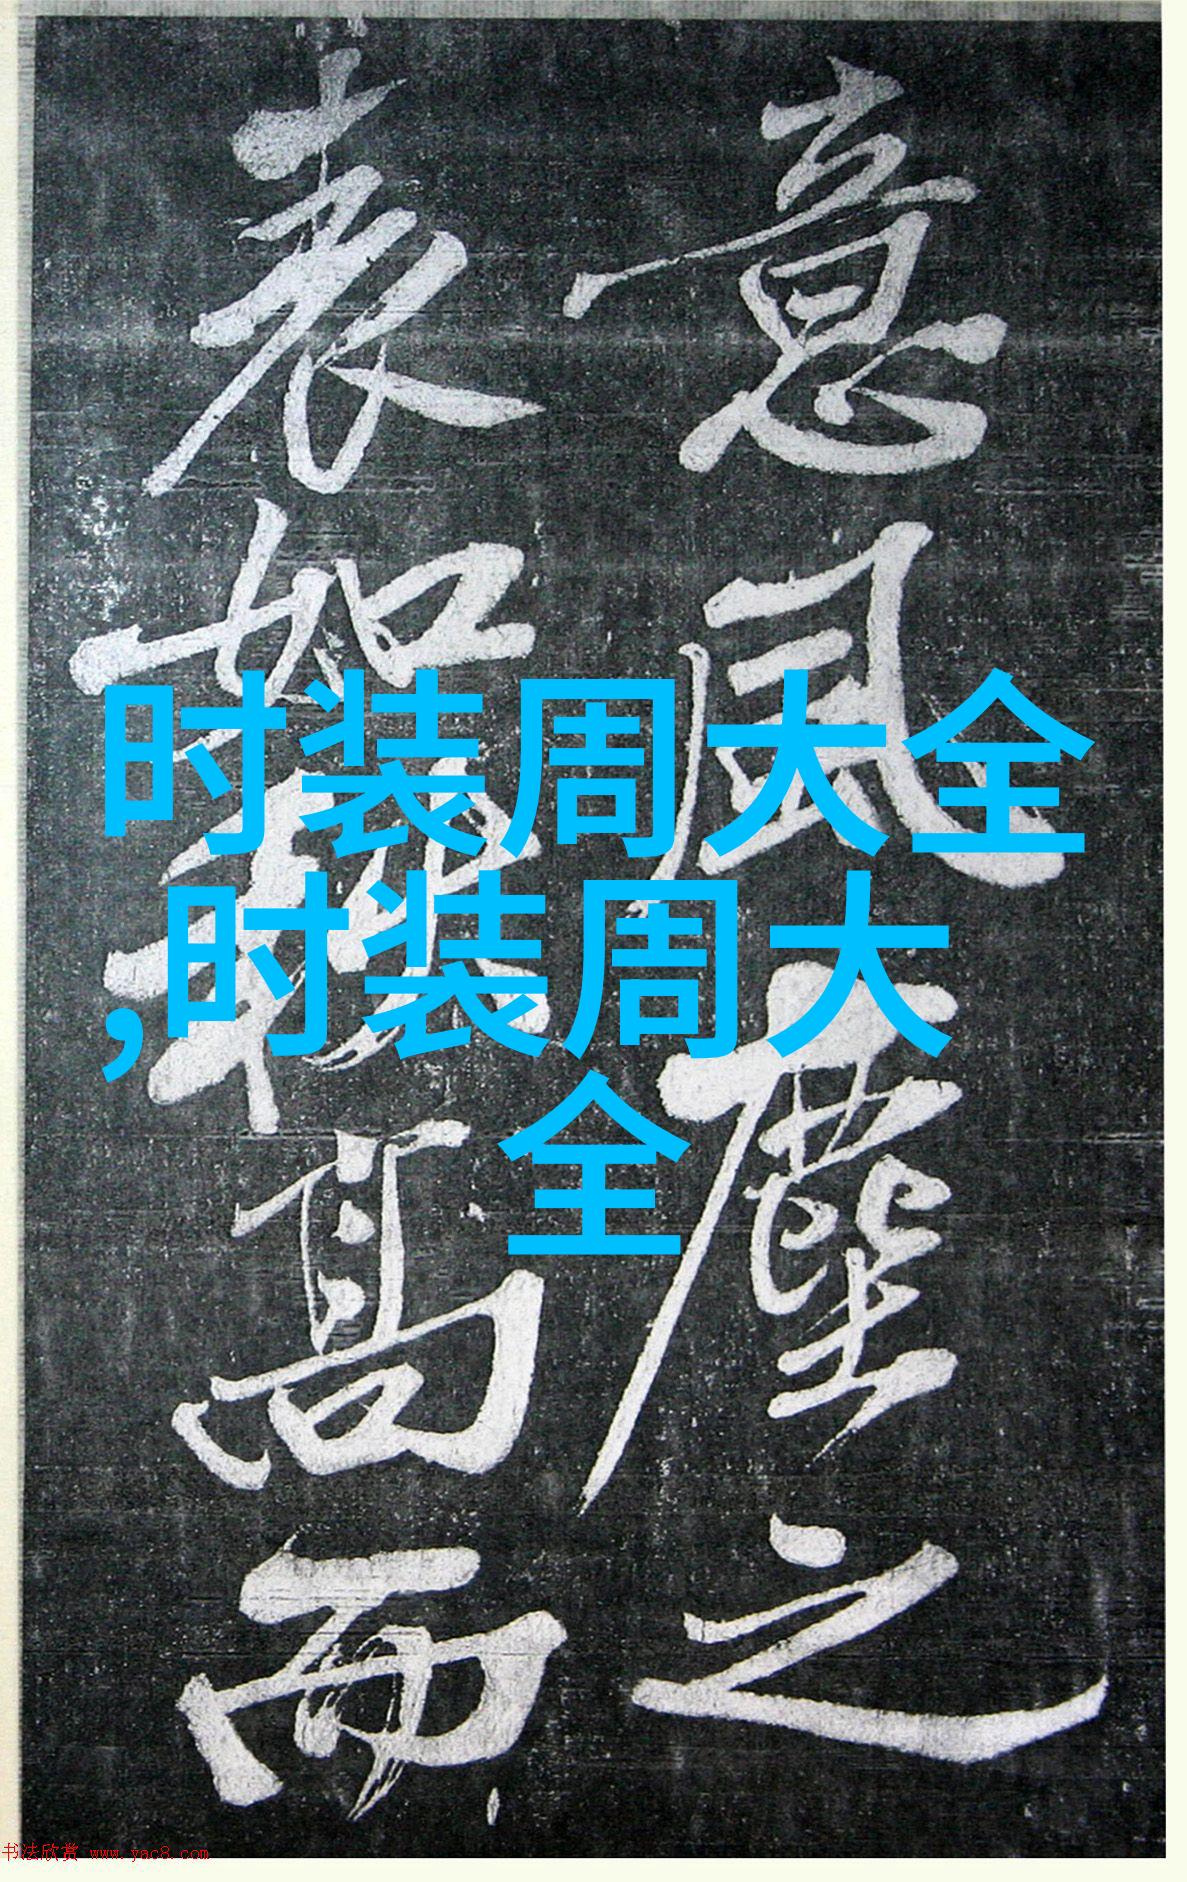 意風塵之
表如高而
时装周大全
,时装周大
全
书法欣赏 www.yac8.com